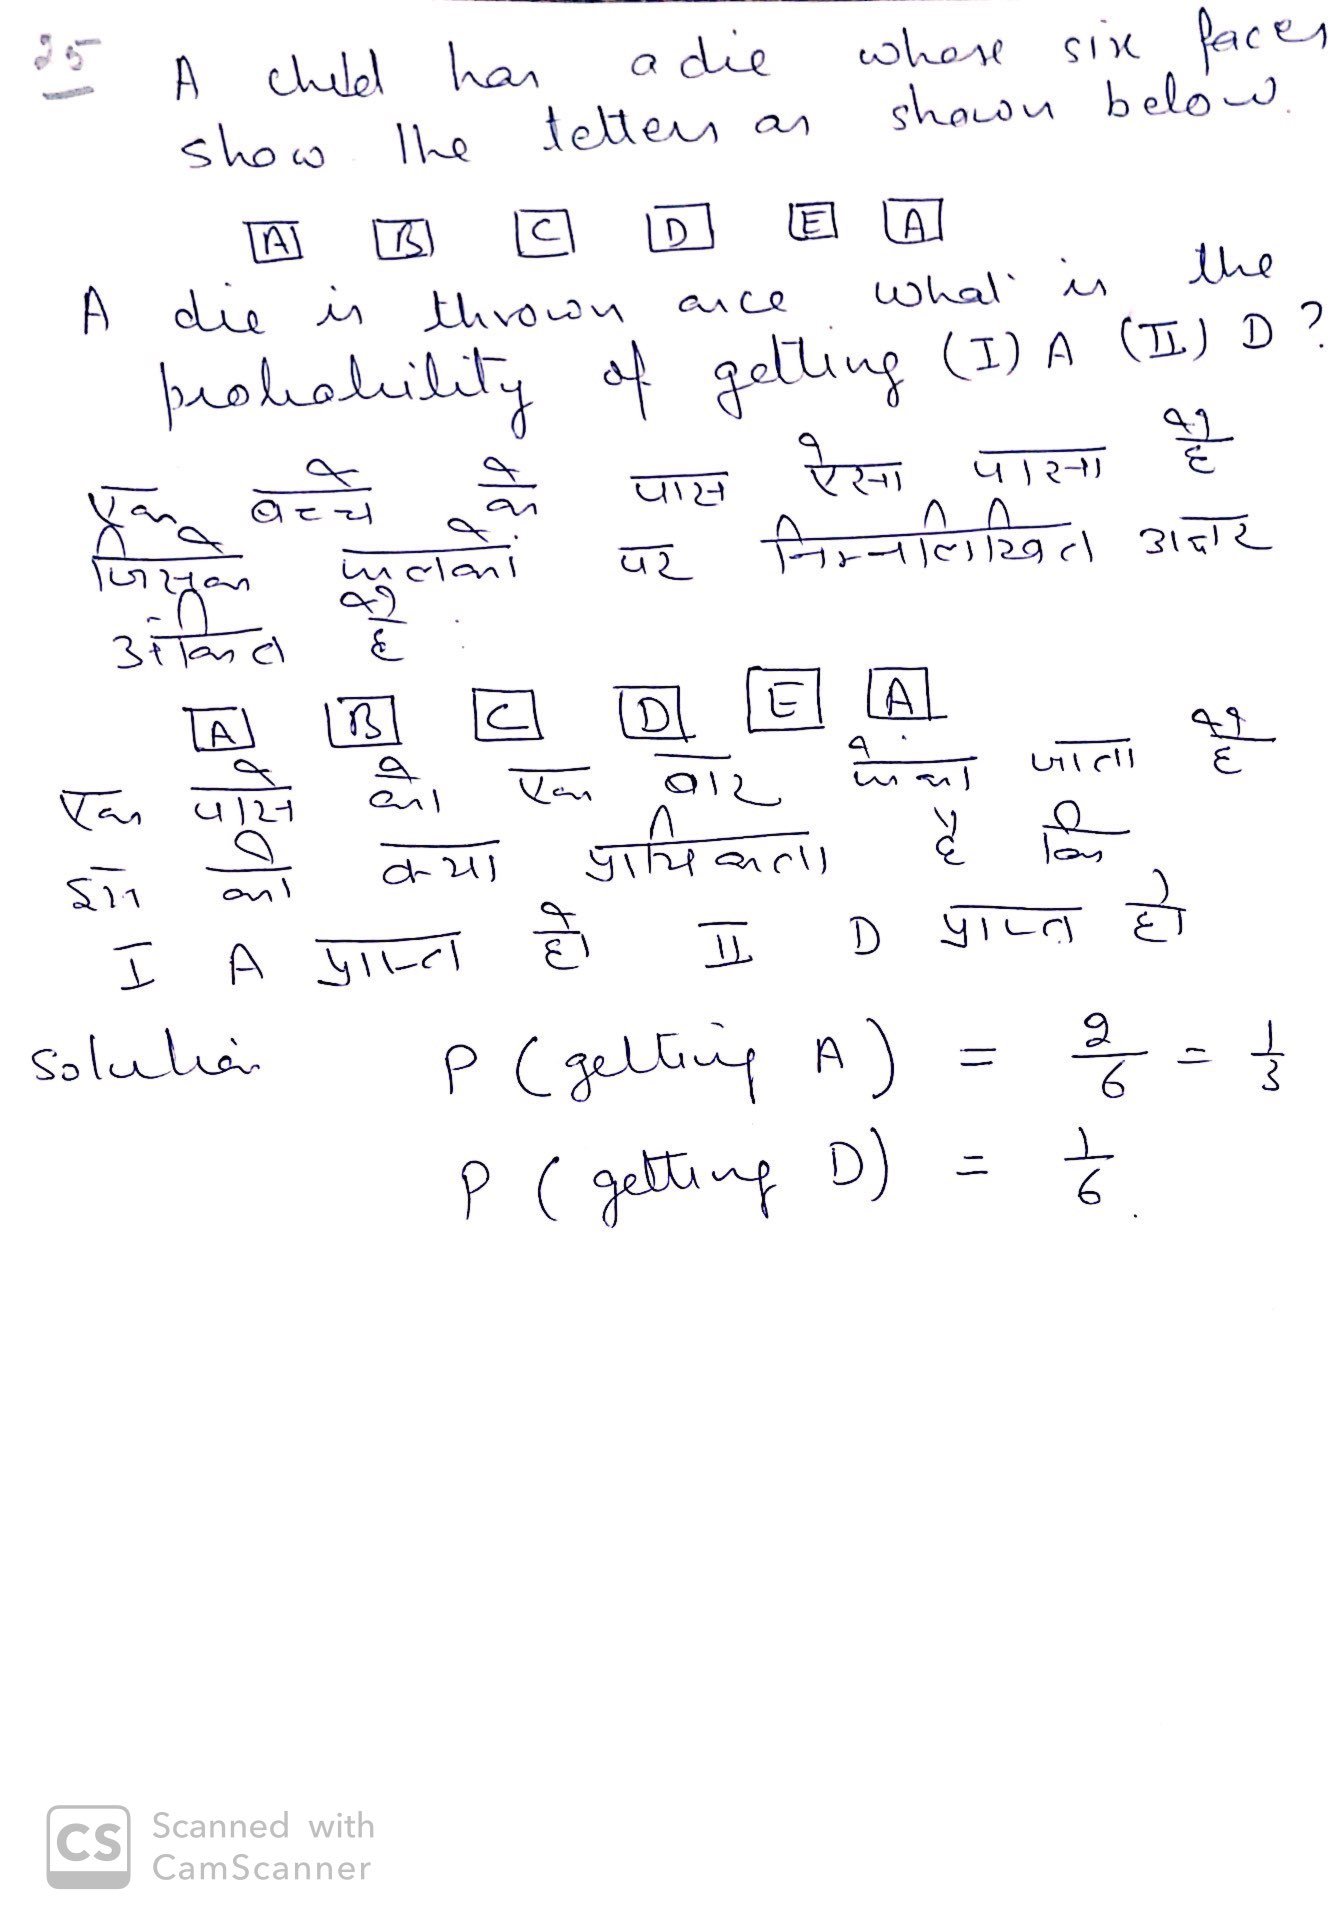 25 A child has a die whose six faces
show the letters as shown below.
A B C D E A
A die is thrown once what is the
probability of getting (I) A (II) D?
एक बच्चे के पास ऐसा पासा है
जिसके फलकों पर निम्नलिखित अक्षर
अंकित है
A B C D E A
एक पासे को एक बार फेंका जाता है
इस की क्या प्रायिकता है कि
I A प्राप्त हो II D प्राप्त हो
Solution P (getting A) = 2/6 = 1/3
P (getting D) = 1/6.
CS Scanned with
CamScanner